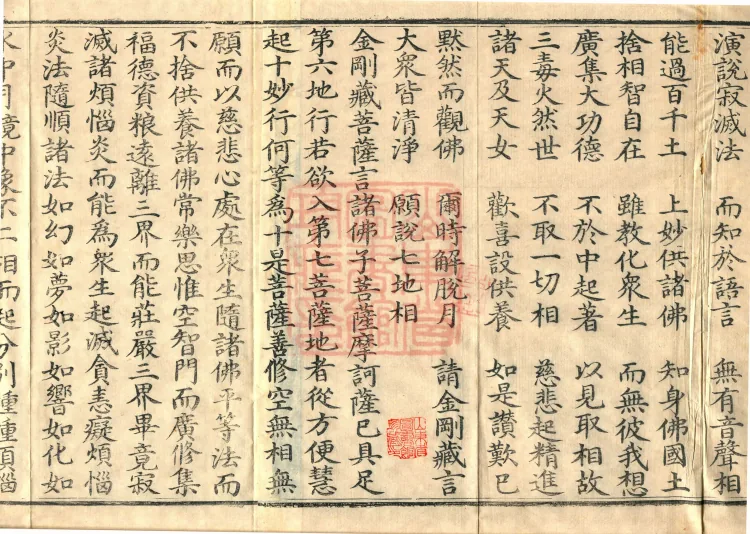 演說寂滅法 而知於語言 無有音聲相
能過百千土 上妙供諸佛 知身佛國土
捨相智自在 雖教化衆生 而無彼我想
廣集大功德 不於中起著 以見取相故
三毒火然世 不取一切相 慈悲起精進
諸天及天女 歡喜設供養 如是讃歎已
默然而觀佛 爾時解脫月 請金剛藏言
大衆皆清淨 願說七地相
金剛藏菩薩言諸佛子菩薩摩訶薩已具足
第六地行若欲入第七菩薩地者從方便慧
起十妙行何等爲十是菩薩善修空無相無
願而以慈悲心處在衆生隨諸佛平等法而
不捨供養諸佛常樂思惟空智門而廣修集
福德資粮遠離三界而能莊嚴三界畢竟寂
滅諸煩惱炎而能爲衆生起滅貪恚癡煩惱
炎法隨順諸法如幻如夢如影如響如化如
水中月鏡中像不二相而起分別種種煩惱